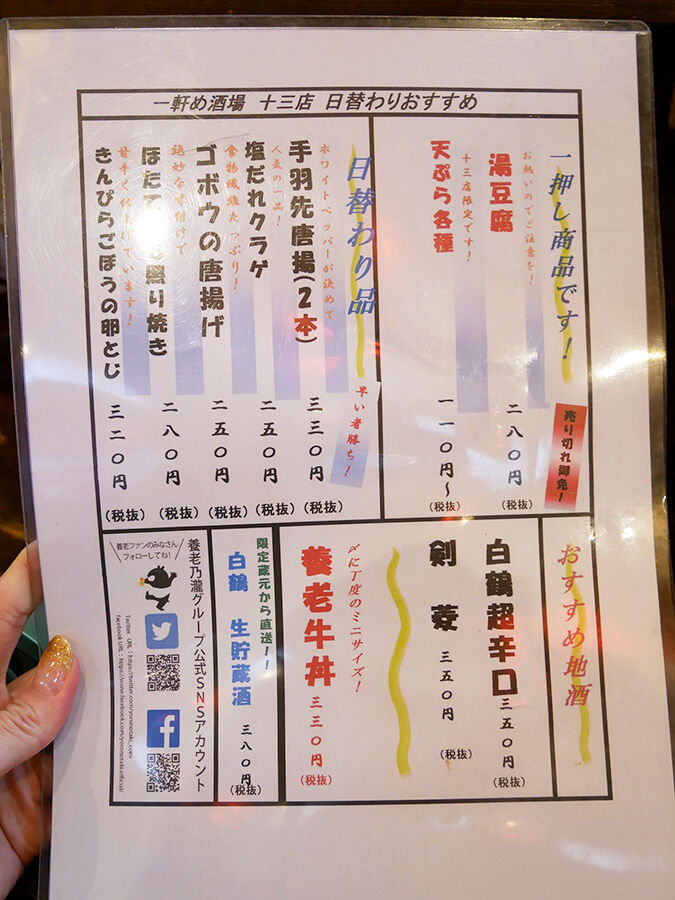 一軒め酒場 十三店 日替わりおすすめ
一押し商品です！
売り切れ御免！
お熱いのでご注意を！
湯豆腐
二八〇円
(税抜)
十三店限定です！
天ぷら各種
一一〇円～
(税抜)
日替わり品
早い者勝ち！
ホワイトペッパーが決めて
手羽先唐揚(2本)
三三〇円
(税抜)
人気の一品！
塩だれクラゲ
二五〇円
(税抜)
食物繊維たっぷり！
ゴボウの唐揚げ
二五〇円
(税抜)
絶妙な味付けで
ほたて 照り焼き
二八〇円
(税抜)
甘辛く仕上げています！
きんぴらごぼうの卵とじ
三二〇円
(税抜)
おすすめ地酒
白鶴超辛口
三五〇円
(税抜)
剣菱
三五〇円
(税抜)
〆に丁度のミニサイズ！
養老牛丼
三三〇円
(税抜)
限定蔵元から直送！！
白鶴 生貯蔵酒
三八〇円
(税抜)
養老乃瀧グループ公式SNSアカウント
養老ファンのみなさん
フォローしてね！
Twitter URL：https://twitter.com/yoronotaki_com
facebook URL：https://www.facebook.com/yoronotaki.official/